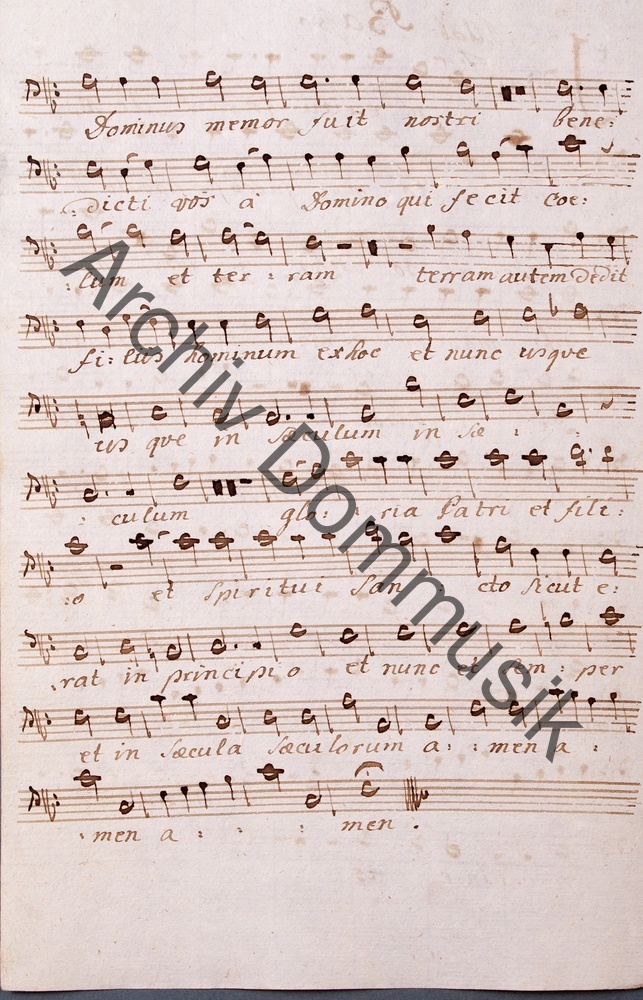 Dominus memor fuit nostri bene:
dicti vos a Domino qui fecit coe:
:lum et ter: ram terram autem dedit
fi: lius hominum ex hoc et nunc usque
us que in sæculum in sæ : :
: culum glo: : ria Patri et fili:
:o et Spiritui San : cto sicut e:
.rat in principio et nunc et sem: per
et in sæcula sæculorum a: : men a :
. men a : : : men .
Archiv Dommusik